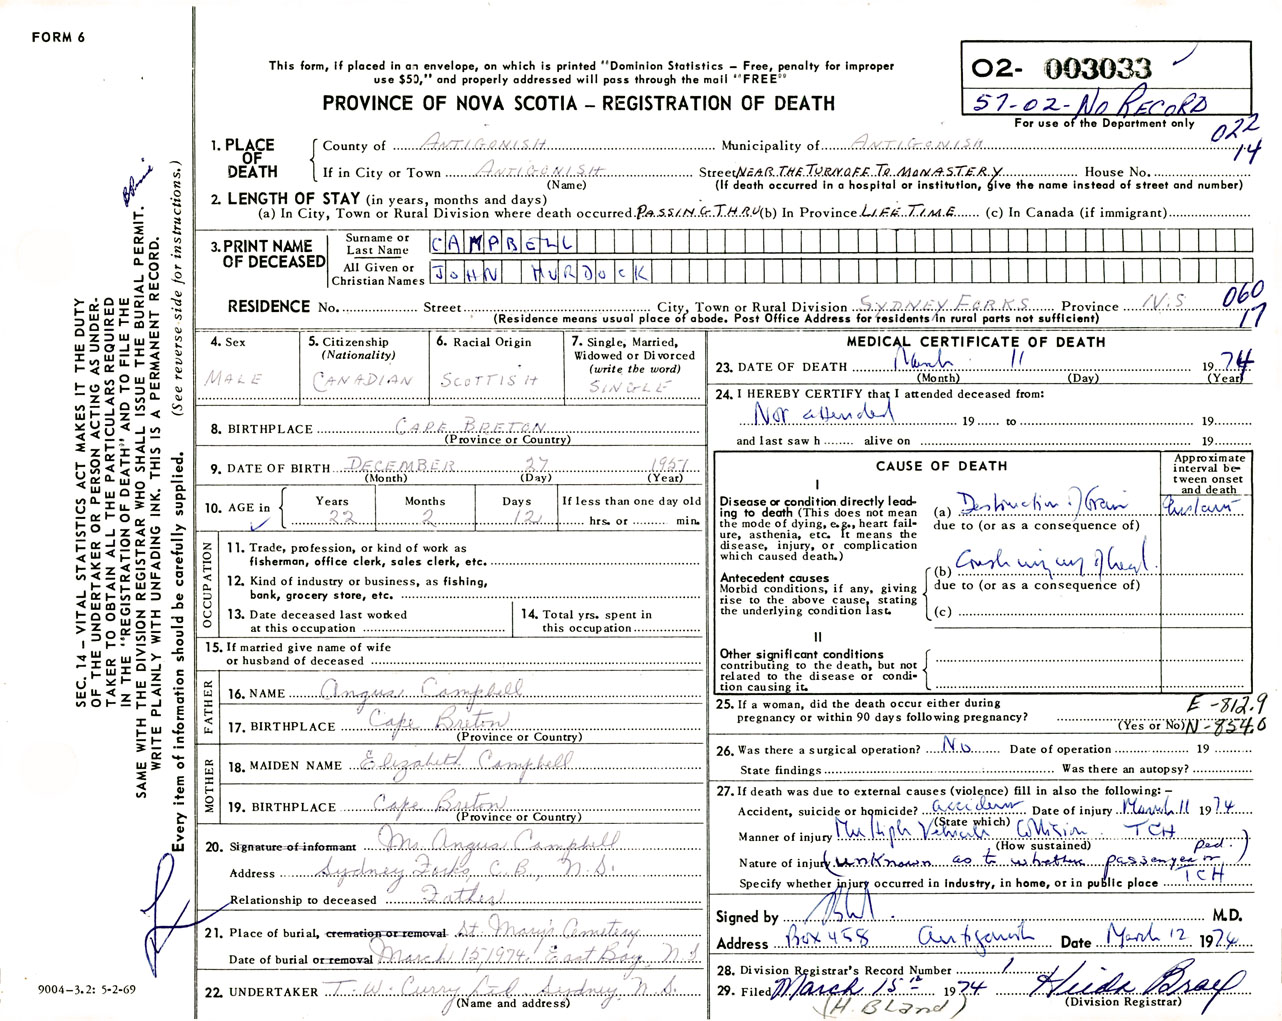 FORM 6
This form, if placed in an envelope, on which is printed "Dominion Statistics – Free, penalty for improper
use $50," and properly addressed will pass through the mail "FREE"
PROVINCE OF NOVA SCOTIA – REGISTRATION OF DEATH
02- 003033
57-02-No RECORD
For use of the Department only
022
14
1. PLACE OF DEATH
County of ANTIGONISH Municipality of ANTIGONISH
If in City or Town ANTIGONISH Street NEAR THE TURNOFF TO MONASTERY House No.
(Name) (If death occurred in a hospital or institution, give the name instead of street and number)
2. LENGTH OF STAY (in years, months and days)
(a) In City, Town or Rural Division where death occurred PASSING THRU (b) In Province LIFE TIME (c) In Canada (if immigrant)
3. PRINT NAME OF DECEASED
Surname or Last Name CAMPBELL
All Given or Christian Names JOHN MURDOCK
RESIDENCE No. Street City, Town or Rural Division SYDNEY FORKS Province N.S
(Residence means usual place of abode. Post Office Address for residents in rural parts not sufficient)
060
17
4. Sex
MALE
5. Citizenship
(Nationality)
CANADIAN
6. Racial Origin
SCOTTISH
7. Single, Married,
Widowed or Divorced
(write the word)
SINGLE
8. BIRTHPLACE CAPE BRETON
(Province or Country)
9. DATE OF BIRTH DECEMBER 27 1951
(Month) (Day) (Year)
10. AGE in
Years Months Days If less than one day old
22 2 12 hrs. or min.
OCCUPATION
11. Trade, profession, or kind of work as
fisherman, office clerk, sales clerk, etc.
12. Kind of industry or business, as fishing,
bank, grocery store, etc.
13. Date deceased last worked
at this occupation
14. Total yrs. spent in
this occupation
15. If married give name of wife
or husband of deceased
FATHER
16. NAME Angus Campbell
17. BIRTHPLACE Cape Breton
(Province or Country)
MOTHER
18. MAIDEN NAME Elizabeth Campbell
19. BIRTHPLACE Cape Breton
(Province or Country)
20. Signature of informant Mr. Angus Campbell
Address Sydney Forks, C.B., N.S.
Relationship to deceased Father
21. Place of burial, cremation or removal St. Mary's Cemetery
Date of burial or removal March 15 1974. East Bay, N.S
22. UNDERTAKER T. W. Curry Ltd Sydney N.S.
(Name and address)
MEDICAL CERTIFICATE OF DEATH
23. DATE OF DEATH March 11 1974
(Month) (Day) (Year)
24. I HEREBY CERTIFY that I attended deceased from:
Not attended 19 to 19
and last saw h alive on 19
CAUSE OF DEATH
Approximate
interval be-
tween onset
and death
I
Disease or condition directly lead-
ing to death (This does not mean
the mode of dying, e.g., heart fail-
ure, asthenia, etc. It means the
disease, injury, or complication
which caused death.)
(a) Destruction of brain Instant
due to (or as a consequence of)
Antecedent causes
Morbid conditions, if any, giving
rise to the above cause, stating
the underlying condition last.
(b) Crush injury of head.
due to (or as a consequence of)
(c)
II
Other significant conditions
contributing to the death, but not
related to the disease or condi-
tion causing it.
25. If a woman, did the death occur either during
pregnancy or within 90 days following pregnancy?
(Yes or No)
E-812.9
N-854.0
26. Was there a surgical operation? No Date of operation 19
State findings Was there an autopsy?
27. If death was due to external causes (violence) fill in also the following: –
Accident, suicide or homicide? accident Date of injury March 11 1974
(State which)
Manner of injury Multiple Vehicle Collision. TCH
(How sustained)
Nature of injury (unknown as to whether passenger or ped.)
Specify whether injury occurred in industry, in home, or in public place TCH
Signed by M.D.
Address Box 458 Antigonish Date March 12 1974
28. Division Registrar's Record Number 1
29. Filed March 15th 1974
(Division Registrar)
(H. Bland)
SEC. 14 – VITAL STATISTICS ACT MAKES IT THE DUTY
OF THE UNDERTAKER OR PERSON ACTING AS UNDER-
TAKER TO OBTAIN ALL THE PARTICULARS REQUIRED
IN THE "REGISTRATION OF DEATH" AND TO FILE THE
SAME WITH THE DIVISION REGISTRAR WHO SHALL ISSUE THE BURIAL PERMIT.
WRITE PLAINLY WITH UNFADING INK. THIS IS A PERMANENT RECORD.
Every item of information should be carefully supplied. (See reverse side for instructions.)
9004-3.2: 5-2-69